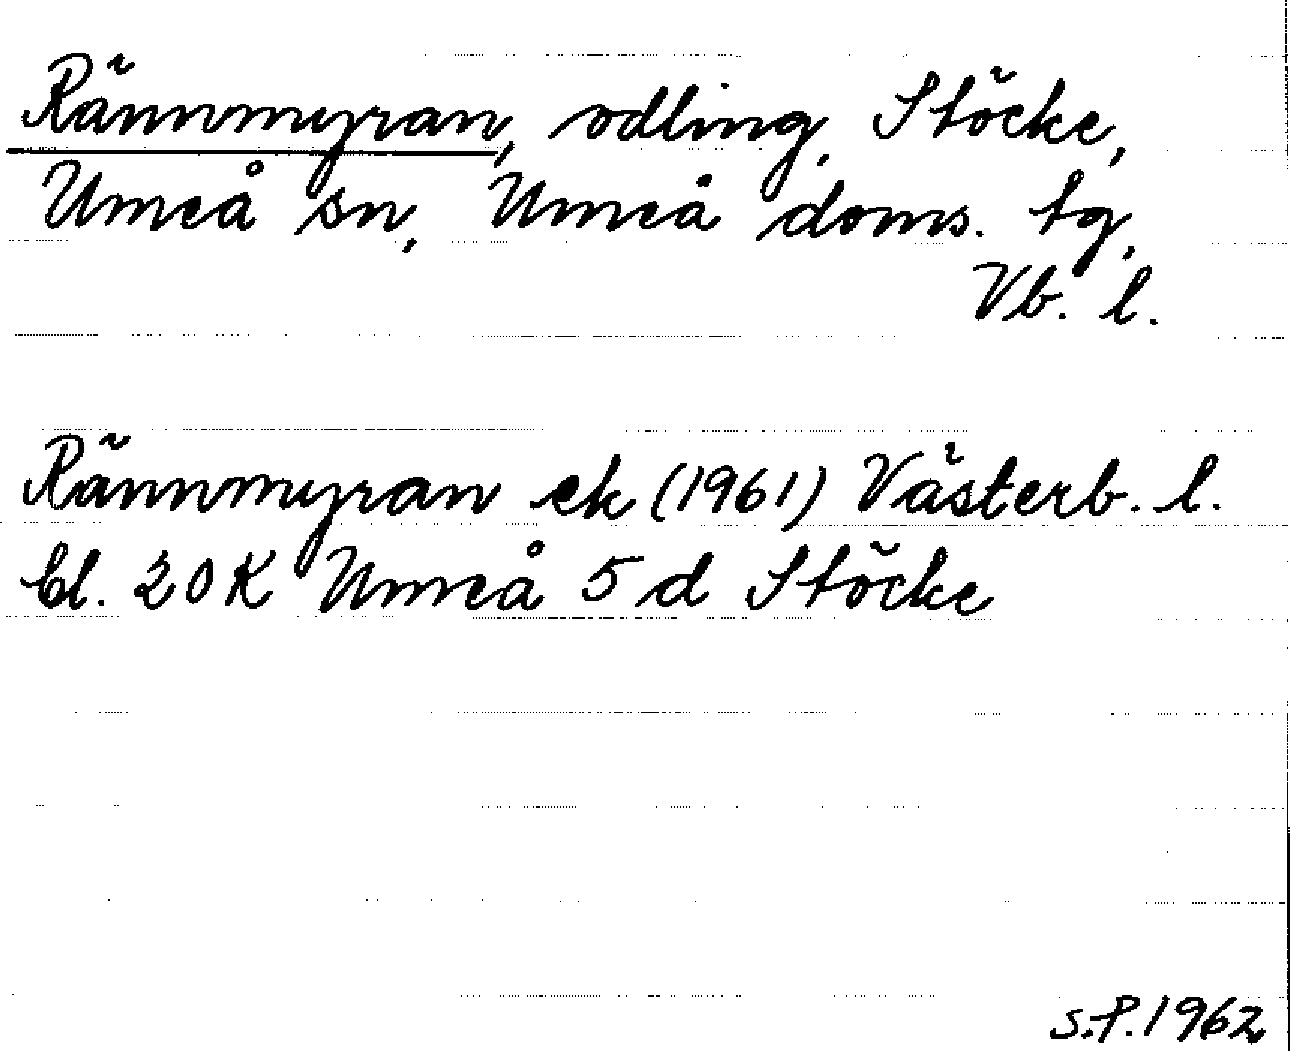 Rännmyran, odling, Stöcke,
Umeå sn, Umeå doms. tg,
Vb. l.
Rännmyran ek (1961) Västerb. l.
bl. 20 K Umeå 5 d Stöcke
S.P. 1962